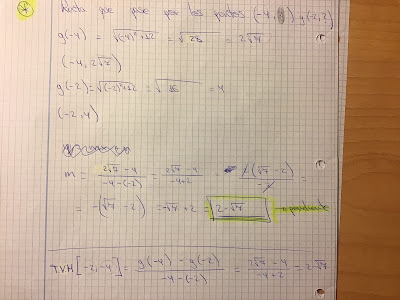 * Recta que pase por los puntos (-4, ) y (-2, )
g(-4) = √(-4)²+12 = √28 = 2√7
(-4, 2√7)
g(-2) = √(-2)²+12 = √16 = 4
(-2, 4)
m = 2√7 - 4 / -4-(-2) = 2√7 - 4 / -4+2 = 2(√7 - 2) / -2 =
= -(√7 - 2) = -√7 + 2 = 2-√7 pendiente
TVM [-2, -4] = g(-4) - g(-2) / -4-(-2) = 2√7 - 4 / -4+2 = 2-√7